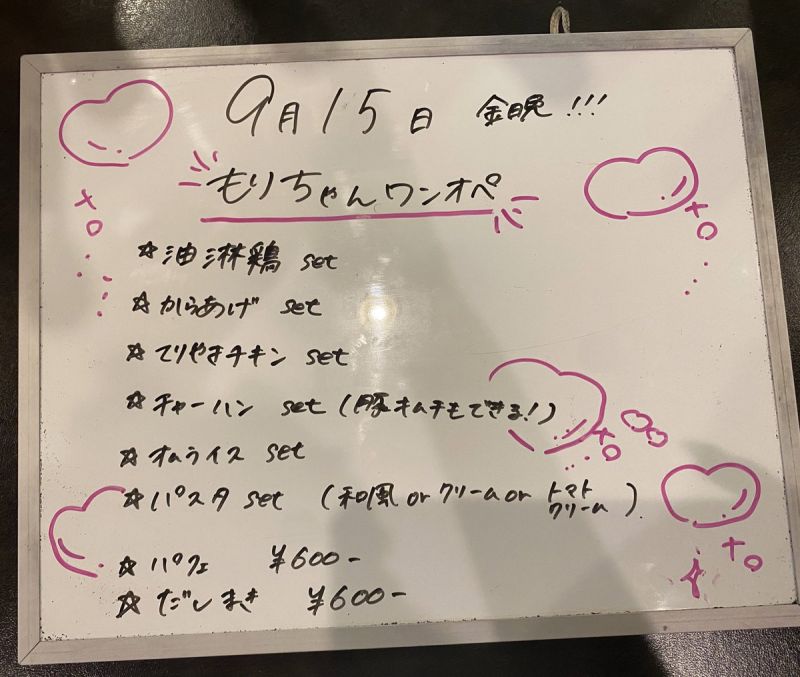 9月15日 金晩!!!
もりちゃんワンオペ
☆油淋鶏 set
☆からあげ set
☆てりやきチキン set
☆チャーハン set (豚キムチもできる!)
☆オムライス set
☆パスタ set (和風 or クリーム or トマトクリーム)
☆パフェ ¥600-
☆だしまき ¥600-